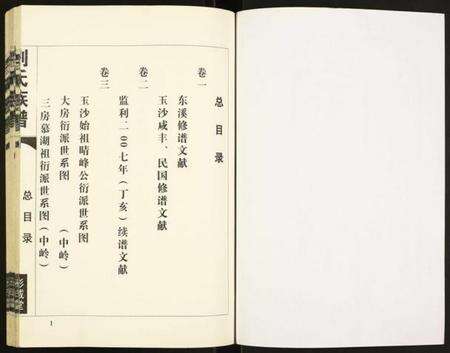 总目录
卷一
东溪修谱文献
玉沙咸丰、民国修谱文献
卷二
监利二00七年(丁亥)续谱文献
卷三
玉沙始祖晴峰公衍派世系图
大房衍派世系图(中岭)
三房慕湖祖衍派世系图(中岭)
刘氏族谱
总目录
彭城堂
1